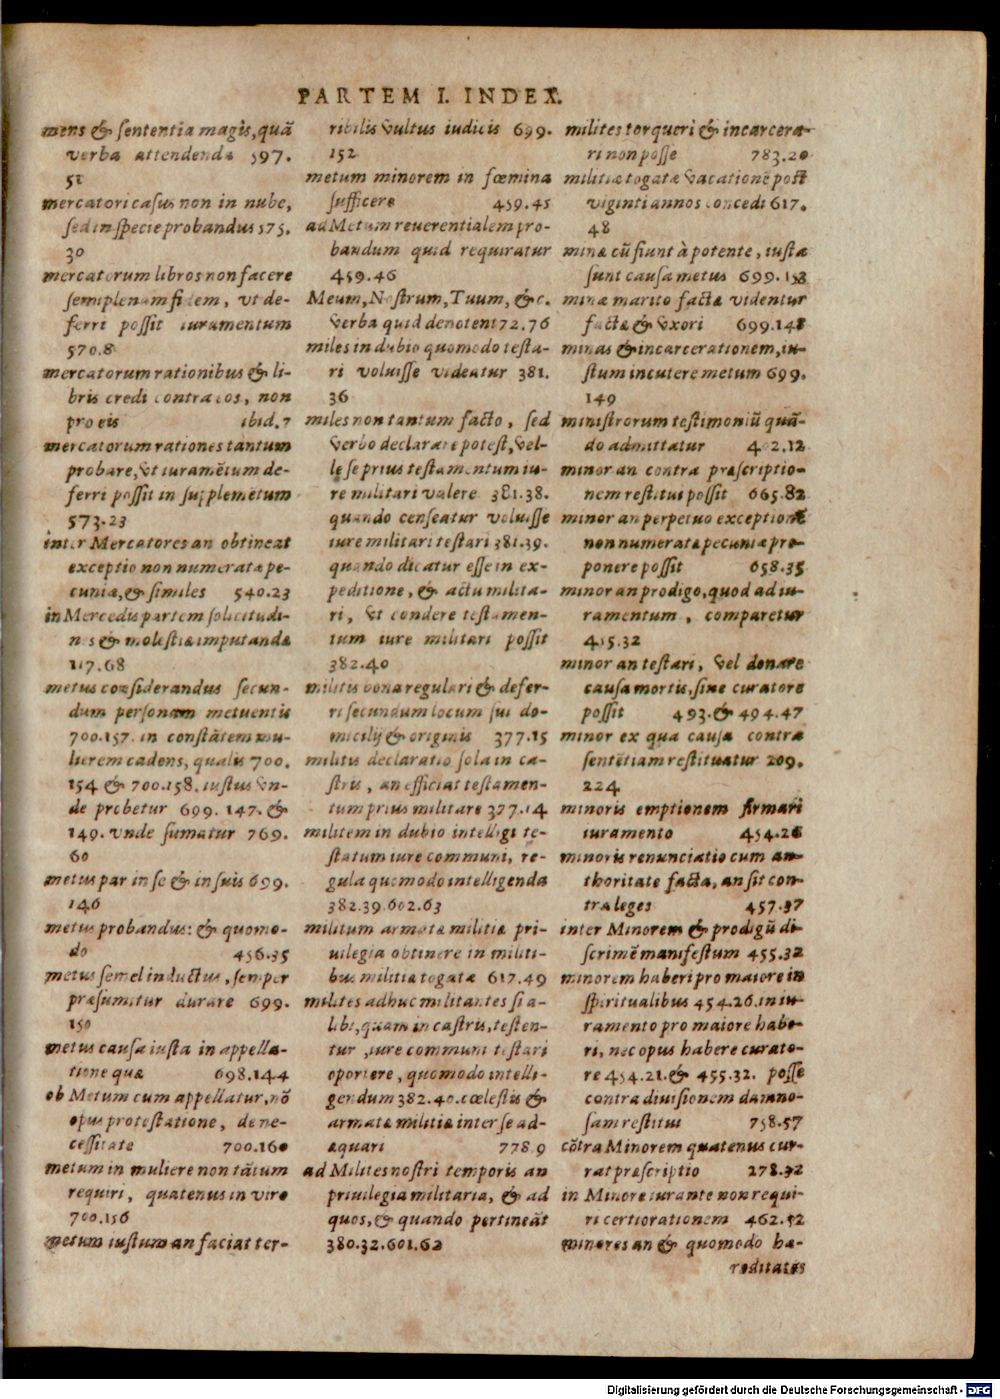 PARTEM I. INDEX.
mens & sententia magis, quã
verba attendenda 597.
51
mercatori casus non in nube,
sed in specie probandus 575.
30
mercatorum libros non facere
semiplenam fidem, vt de-
ferri possit iuramentum
570.8
mercatorum rationibus & li-
bris credi contra eos, non
pro eis ibid.7
mercatorum rationes tantum
probare, vt iuramẽtum de-
ferri possit in supplemẽtum
573.23
inter Mercatores an obtineat
exceptio non numeratæ pe-
cuniæ, & similes 540.23
in Mercedis partem solicitudi-
nis & molestiæ imputanda
117.68
metus considerandus secun-
dum personam metuentis
700.157. in constãtem mu-
lierem cadens, qualis 700.
154 & 700.158. iustus vn-
de probetur 699. 147. &
149. vnde sumatur 769.
60
metus par in se & in suis 699.
146
metus probandus: & quomo-
do 456.35
metus semel inductus, semper
præsumitur durare 699.
150
metus causa iusta in appella-
tione quæ 698.144
ob Metum cum appellatur, nõ
opus protestatione, de ne-
cessitate 700.160
metum in muliere non tãtum
requiri, quatenus in viro
700.156
metum iustum an faciat ter-
ribilis vultus iudicis 699.
152
metum minorem in fœmina
sufficere 459.45
ad Metum reuerentialem pro-
bandum quid requiratur
459.46
Meum, Nostrum, Tuum, &c.
verba quid denotent 72.76
miles in dubio quomodo testa-
ri voluisse videatur 381.
36
miles non tantum facto, sed
verbo declarare potest, vel-
le se prius testamentum iu-
re militari valere 381.38.
quando censeatur voluisse
iure militari testari 381.39.
quando dicatur esse in ex-
peditione, & actu milita-
ri, vt condere testamen-
tum iure militari possit
382.40
militis bona regulari & defer-
ri secundum locum sui do-
micilij & originis 377.15
militis declaratio sola in ca-
stris, an efficiat testamen-
tum prius militare 377.14
militem in dubio intelligi te-
statum iure communi, re-
gula quomodo intelligenda
382.39.602.63
militum armatæ militiæ pri-
uilegia obtinere in militi-
bus militiæ togatæ 617.49
milites adhuc militantes si a-
libi, quam in castris, testen-
tur, iure communi testari
oportere, quomodo intelli-
gendum 382.40. cœlestis &
armatæ militiæ inter se ad-
æquari 778.9
ad Milites nostri temporis an
priuilegia militaria, & ad
quos, & quando pertineãt
380.32.601.62
milites torqueri & incarcera-
ri non posse 783.20
militiæ togatæ vacationẽ post
viginti annos concedi 617.
48
minæ cũ fiunt à potente, iusta
sunt causa metus 699.153
minæ marito factæ videntur
factæ & vxori 699.148
minas & incarcerationem, iu-
stum incutere metum 699.
149
ministrorum testimoniũ quã-
do admittatur 402.12
minor an contra præscriptio-
nem restitui possit 665.82
minor an perpetuo exceptionẽ
non numeratæ pecuniæ pro-
ponere possit 658.35
minor an prodigo, quod ad iu-
ramentum, comparetur
455.32
minor an testari, vel donare
causa mortis, sine curatore
possit 493. & 494.47
minor ex qua causa contra
sentẽtiam restituatur 209.
224
minoris emptionem firmari
iuramento 454.26
minoris renunciatio cum au-
thoritate facta, an sit con-
tra leges 457.37
inter Minorem & prodigũ di-
scrimẽ manifestum 455.32
minorem haberi pro maiore in
spiritualibus 454.26. in iu-
ramento pro maiore habe-
ri, nec opus habere curato-
re 454.21. & 455.32. posse
contra diuisionem damno-
sam restitui 758.57
cõtra Minorem quatenus cur-
rat præscriptio 278.32
in Minore iurante non requi-
ri certiorationem 462.52
minores an & quomodo hæ-
reditates
Digitalisierung gefördert durch die Deutsche Forschungsgemeinschaft - DFG